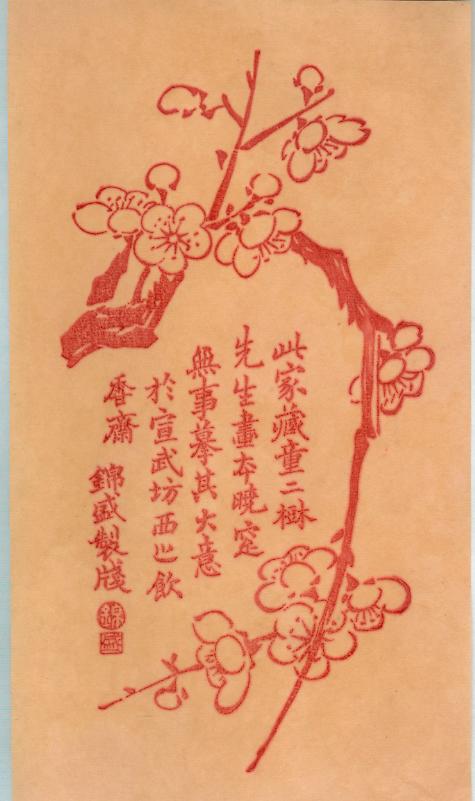 此家藏童二樹
先生畫本曉窓
無事摹其大意
於宣武坊西之飲
香齋 錦盛製牋
錦盛